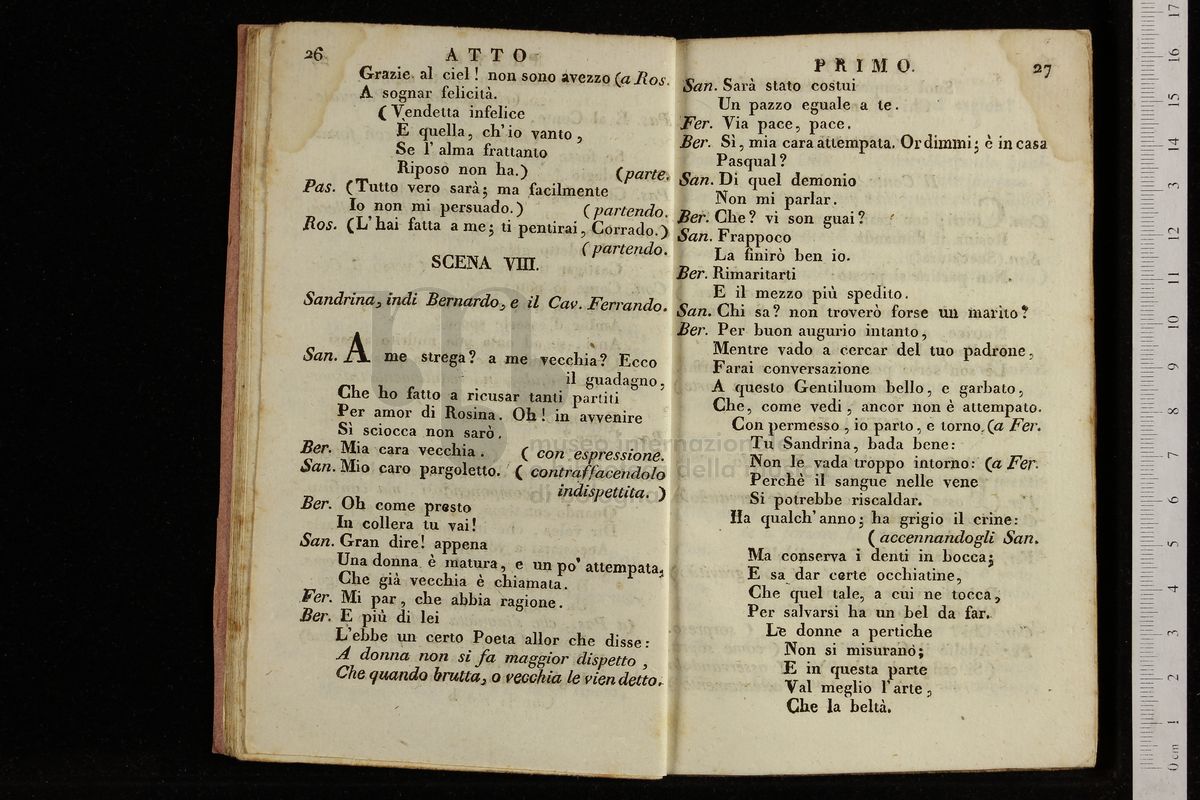 26 ATTO
Grazie al ciel! non sono avezzo (a Ros.
A sognar felicità.
(Vendetta infelice
È quella, ch'io vanto,
Se l'alma frattanto
Riposo non ha.) (parte.
Pas. (Tutto vero sarà; ma facilmente
Io non mi persuado.) (partendo.
Ros. (L'hai fatta a me; ti pentirai, Corrado.)
(partendo.
SCENA VIII.
Sandrina, indi Bernardo, e il Cav. Ferrando.
San. A me strega? a me vecchia? Ecco
il guadagno,
Che ho fatto a ricusar tanti partiti
Per amor di Rosina. Oh! in avvenire
Sì sciocca non sarò.
Ber. Mia cara vecchia. (con espressione.
San. Mio caro pargoletto. (contraffacendolo
indispettita.)
Ber. Oh come presto
In collera tu vai!
San. Gran dire! appena
Una donna è matura, e un po' attempata,
Che già vecchia è chiamata.
Fer. Mi par, che abbia ragione.
Ber. E più di lei
L'ebbe un certo Poeta allor che disse:
A donna non si fa maggior dispetto,
Che quando brutta, o vecchia le vien detto.
PRIMO. 27
San. Sarà stato costui
Un pazzo eguale a te.
Fer. Via pace, pace.
Ber. Sì, mia cara attempata. Or dimmi; è in casa
Pasqual?
San. Di quel demonio
Non mi parlar.
Ber. Che? vi son guai?
San. Frappoco
La finirò ben io.
Ber. Rimaritarti
E il mezzo più spedito.
San. Chi sa? non troverò forse un marito?
Ber. Per buon augurio intanto,
Mentre vado a cercar del tuo padrone,
Farai conversazione
A questo Gentiluom bello, e garbato,
Che, come vedi, ancor non è attempato.
Con permesso, io parto, e torno. (a Fer.
Tu Sandrina, bada bene:
Non le vada troppo intorno: (a Fer.
Perchè il sangue nelle vene
Si potrebbe riscaldar.
Ha qualch'anno; ha grigio il crine:
(accennandogli San.
Ma conserva i denti in bocca;
E sa dar certe occhiatine,
Che quel tale, a cui ne tocca,
Per salvarsi ha un bel da far.
Le donne a pertiche
Non si misurano;
E in questa parte
Val meglio l'arte,
Che la beltà.